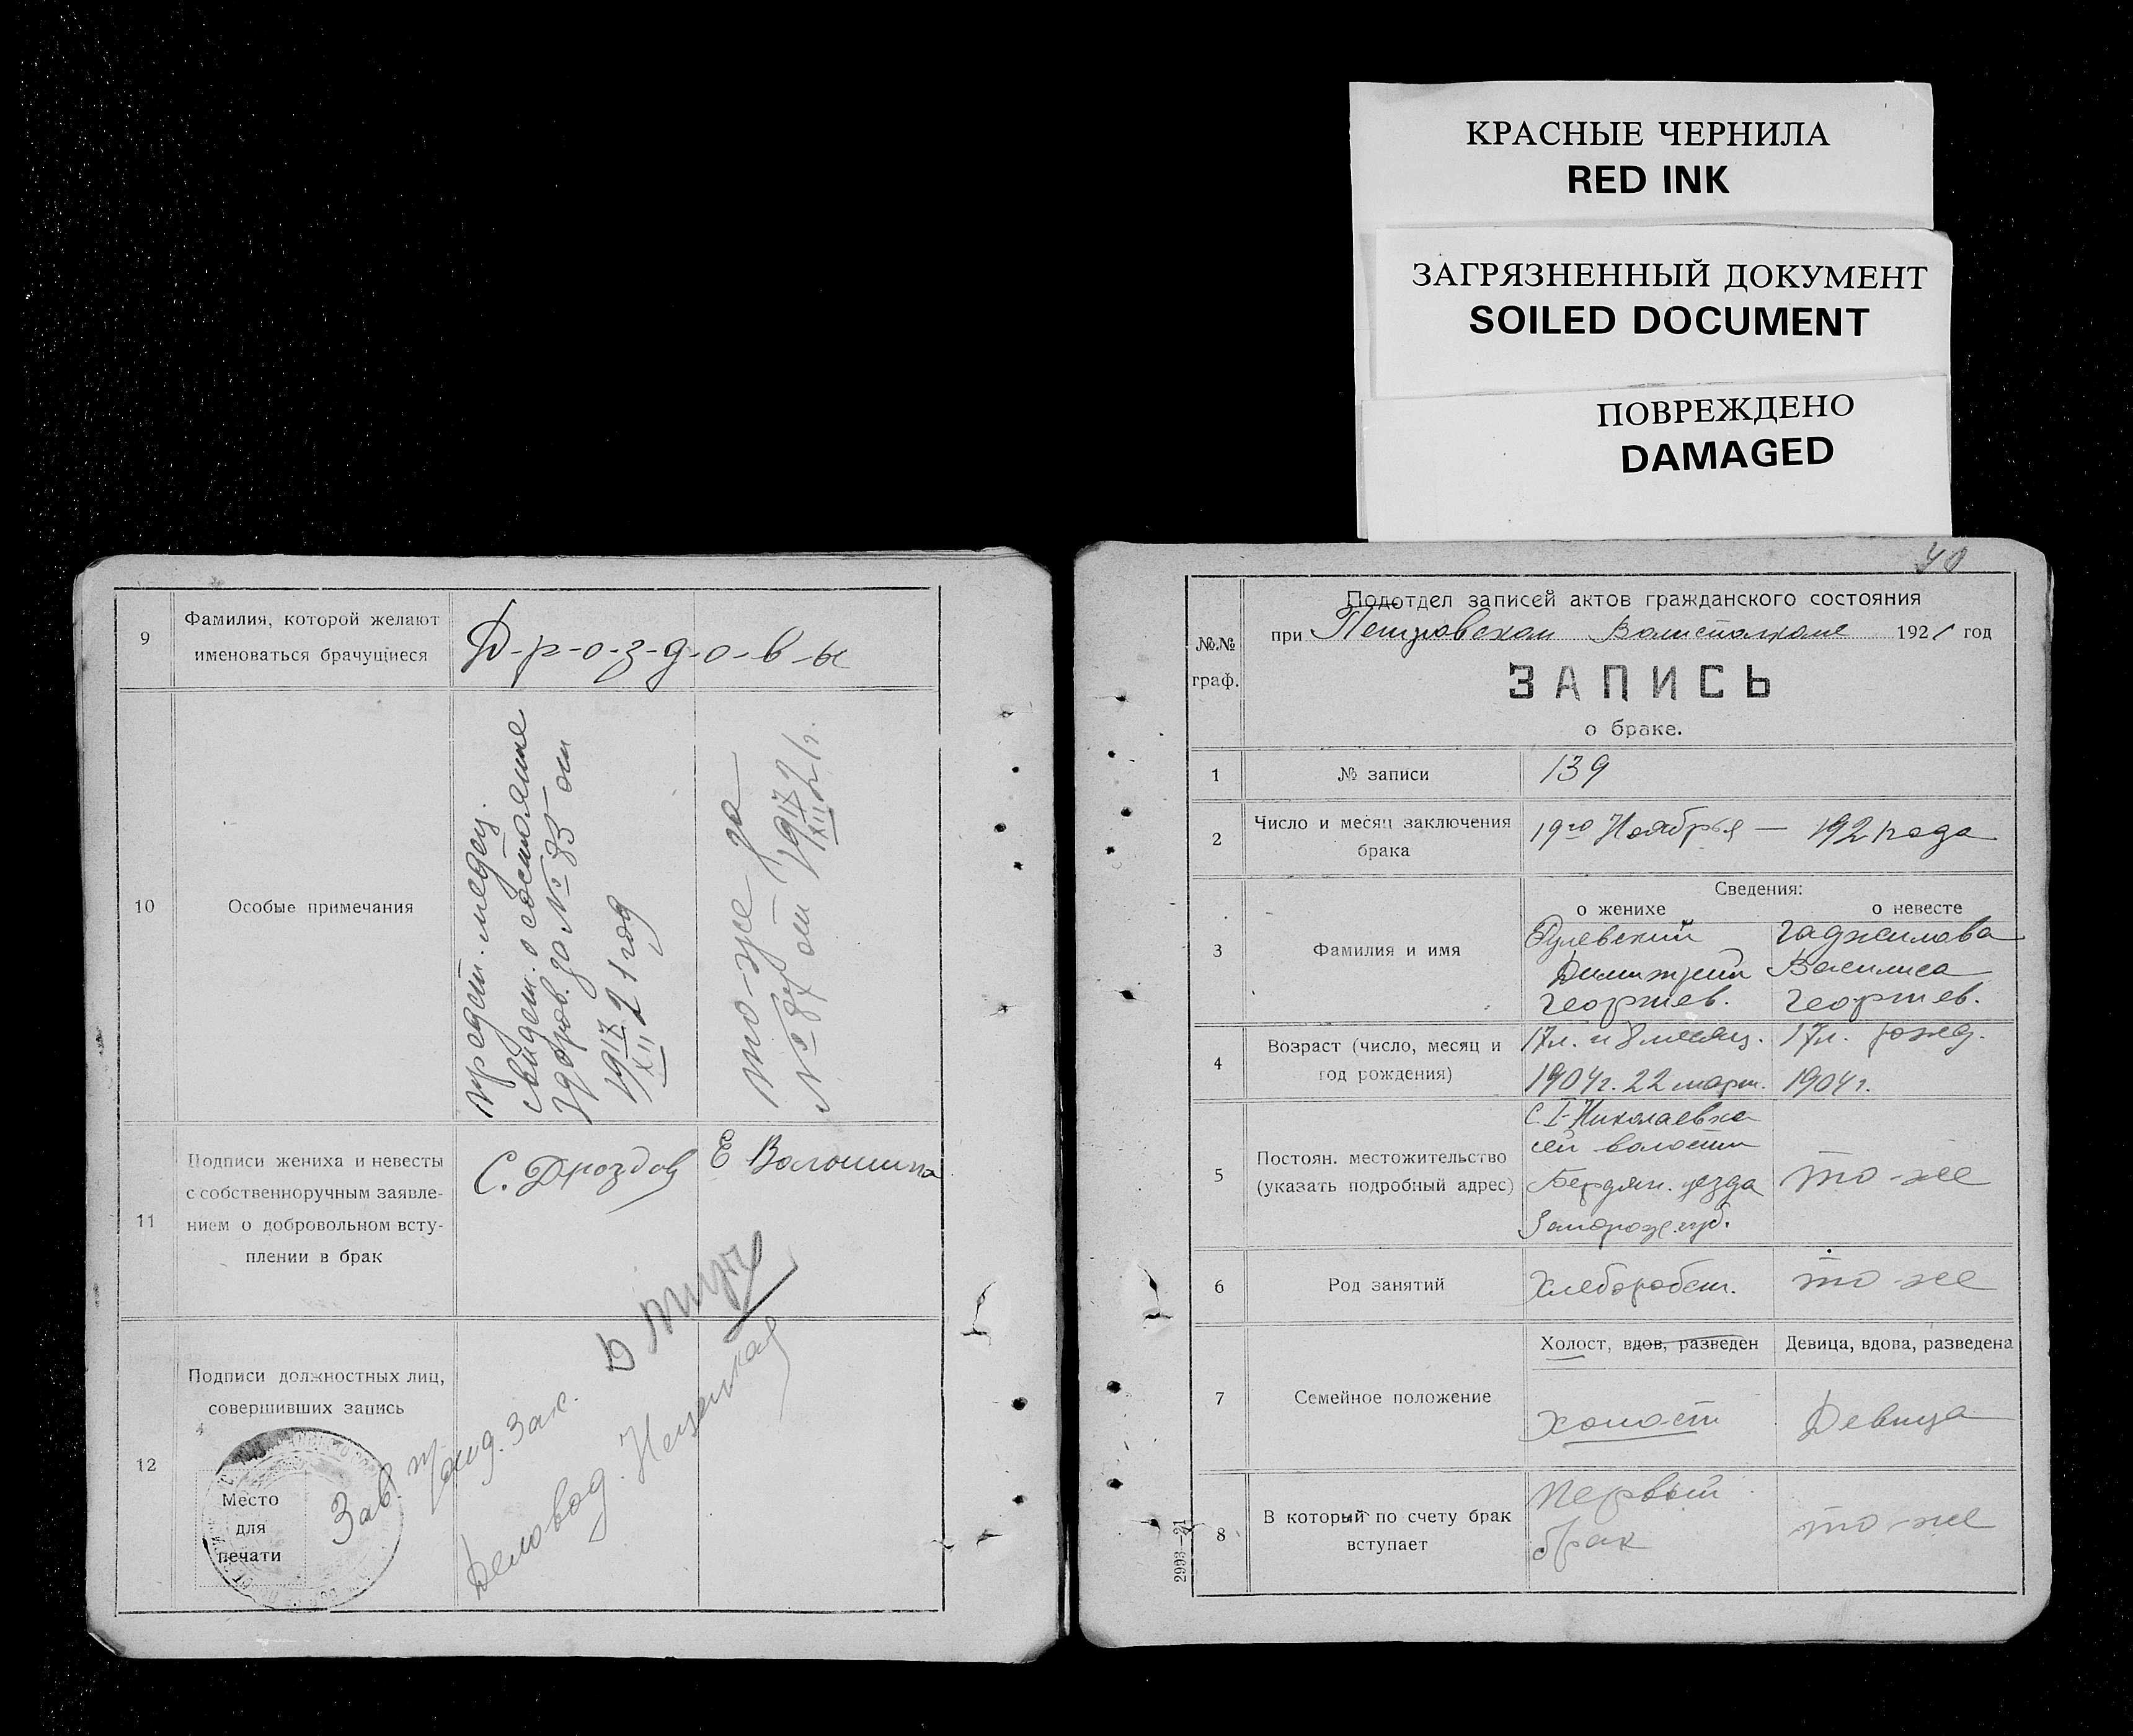 КРАСНЫЕ ЧЕРНИЛА
RED INK
ЗАГРЯЗНЕННЫЙ ДОКУМЕНТ
SOILED DOCUMENT
ПОВРЕЖДЕНО
DAMAGED
9
Фамилия, которой желают
именоваться брачущиеся
Д-р-о-з-д-о-в-ы
10
Особые примечания
предст. медец.
свидет. о состояние
здоров. за № 85 от
19 17/XII 21 год
то-же за
№ 84 от 19 17/XII 21 г.
11
Подписи жениха и невесты
с собственноручным заявле-
нием о добровольном всту-
плении в брак
С. Дроздов
Е Волошина
12
Подписи должностных лиц,
совершивших запись
Место
для
печати
Зав.
Деловод.
40
№№
граф.
Подотдел записей актов гражданского состояния
при Петровском Волисполкоме 1921 год
ЗАПИСЬ
о браке.
1
№ записи
139
2
Число и месяц заключения
брака
19го Ноября — 1921 года
3
Фамилия и имя
Сведения:
о женихе
о невесте
Гаджилова
Димитрий
Василиса
Георгиев.
Георгиев.
4
Возраст (число, месяц и
год рождения)
17л. и 8 месяц.
17л. рожд.
1904г. 22 март.
1904г.
5
Постоян. местожительство
(указать подробный адрес)
С. I-Николаевка
сей волости
Бердян. уезда
Запорож. губ.
то-же
6
Род занятий
Хлеборобст.
то-же
7
Семейное положение
Холост, вдов, разведен
Девица, вдова, разведена
холост
Девица
8
В который по счету брак
вступает
Первый
брак
то-же
2993—21